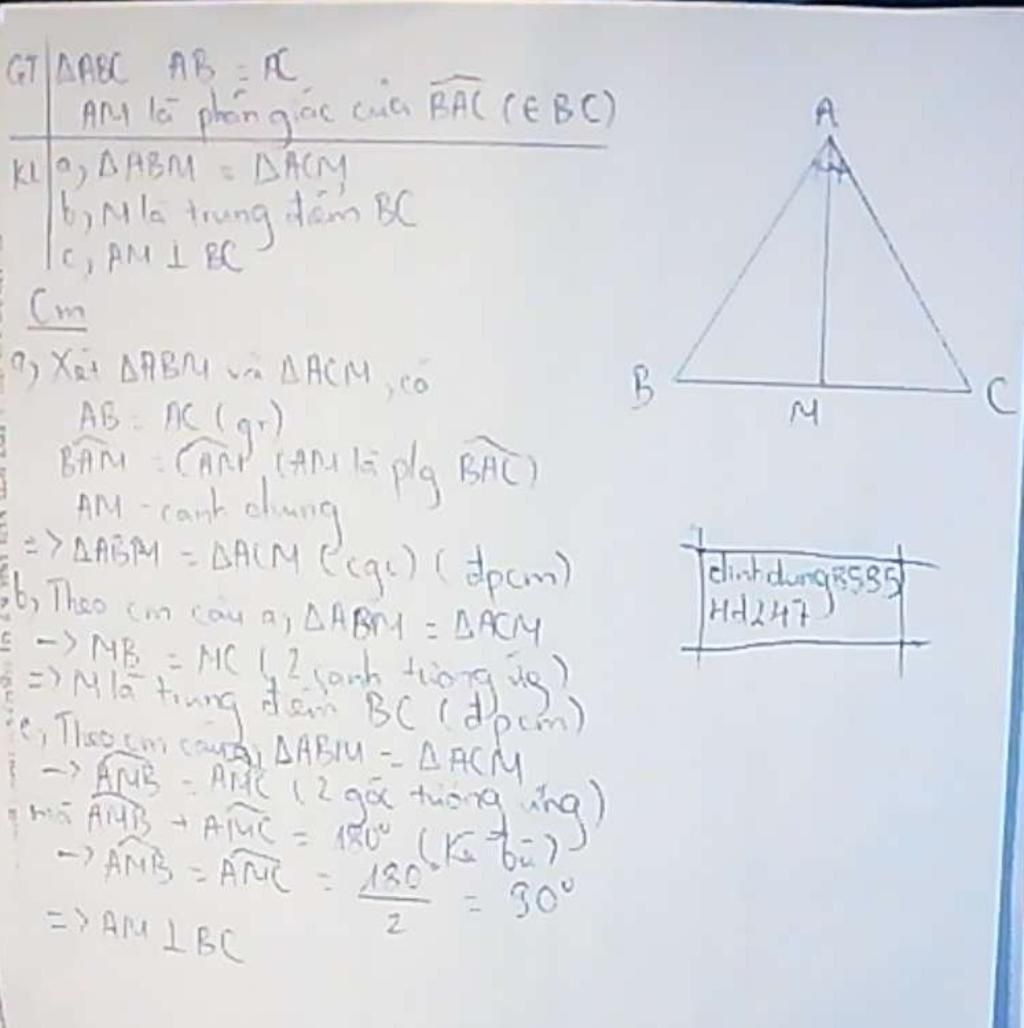 GT ΔABC AB = AC
AM là phân giác của BAC (∈ BC)
KL a, ΔABM = ΔACM
b, M là trung điểm BC
c, AM ⊥ BC
Cm
a, Xét ΔABM và ΔACM, có
AB = AC (gt)
BAM = CAM (AM là p/g BAC)
AM - cạnh chung
=> ΔABM = ΔACM (cgc) (đpcm)
b, Theo cm câu a, ΔABM = ΔACM
-> MB = MC (2 cạnh tương ứg)
=> M là trung điểm BC (đpcm)
c, Theo cm câu a, ΔABM = ΔACM
-> AMB = AMC (2 góc tương ứng)
mà AMB + AMC = 180° (Kề bù)
-> AMB = AMC = 180°/2 = 90°
=> AM ⊥ BC
A
B
M
C
dinhdung8585
Hd247